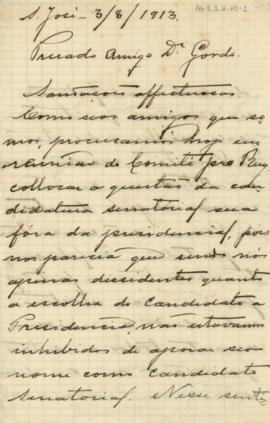 AG 2.1.2.40-1
S. José - 3/8/1913.
Presado Amigo Dr. Gordo.
Saudações affectuosas
Como seos amigos que so-
mos, procuramos hoje em
reunião do Comité pro Ruy
collocar a questão da can-
didatura senatorial sua
fóra da presidencial, pois
nos parecia que sendo nós
apenas dissidentes quanto
a escolha do candidato a
Presidencia não estavamos
inhibidos de apoiar seo
nome como candidato
senatorial. Nesse senti-